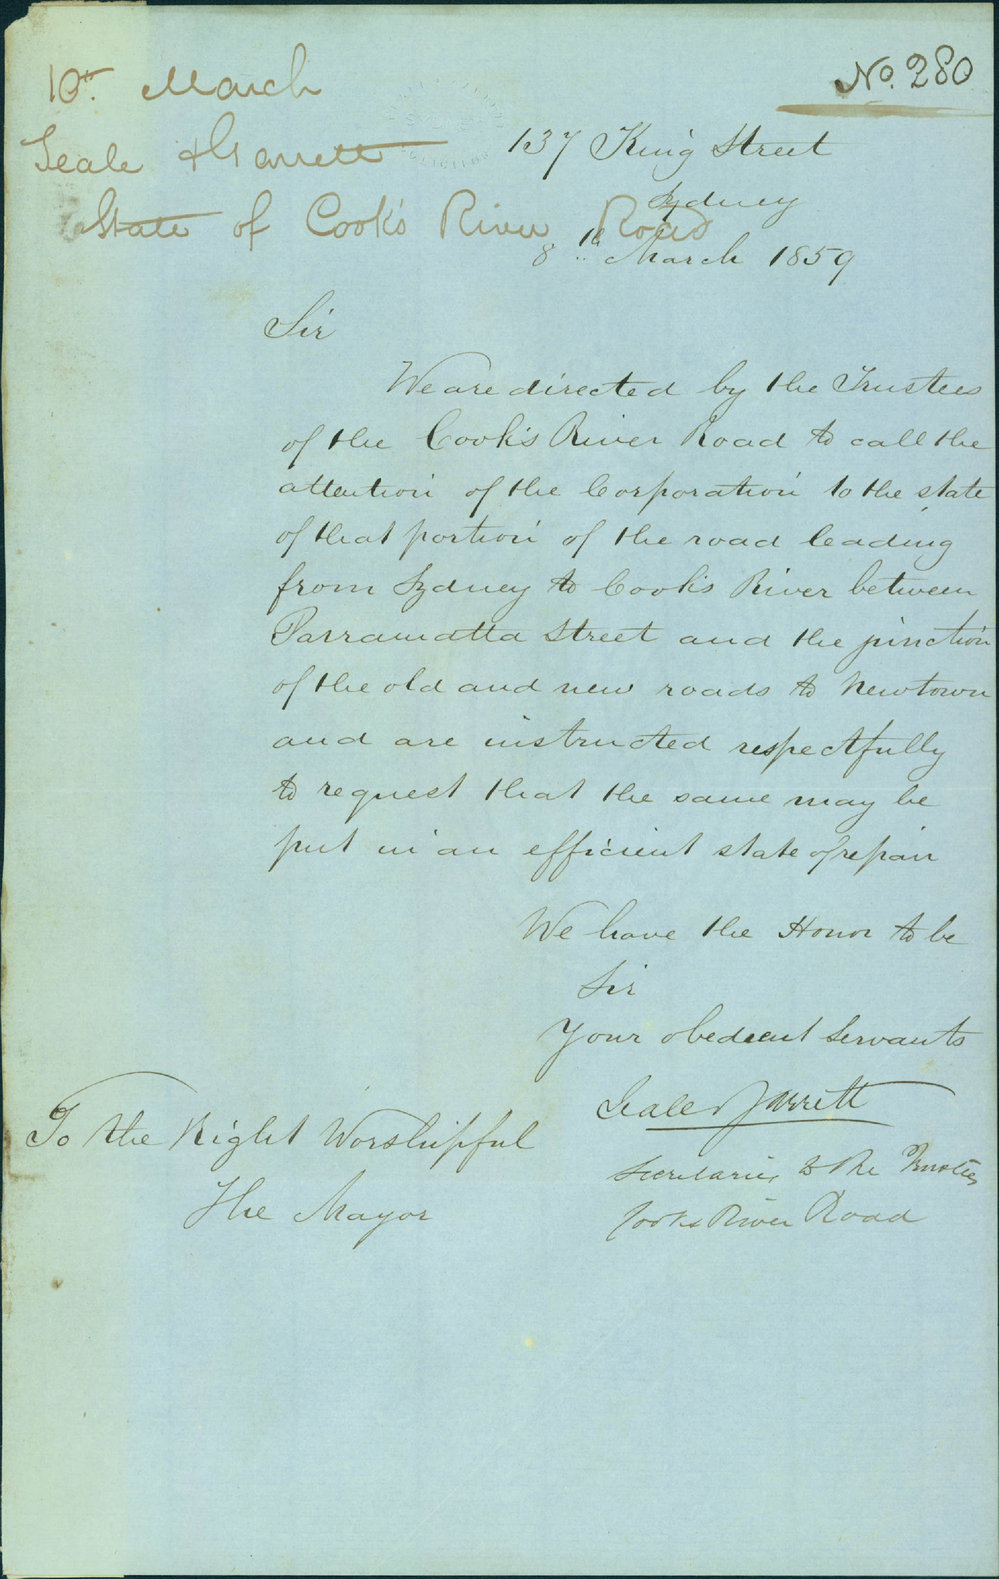 No. 280
10th March
Teale & Garrett
State of Cook's River Road
137 King Street
Sydney
8th March 1859
Sir
We are directed by the Trustees
of the Cook's River Road to call the
attention of the Corporation to the state
of that portion of the road leading
from Sydney to Cook's River between
Parramatta Street and the junction
of the old and new roads to Newtown
and are instructed respectfully
to request that the same may be
put in an efficient state of repair
We have the Honor to be
Sir
Your obedient Servants
Teale & Garrett
Secretaries to the Trustees
Cooks River Road
To the Right Worshipful
The Mayor